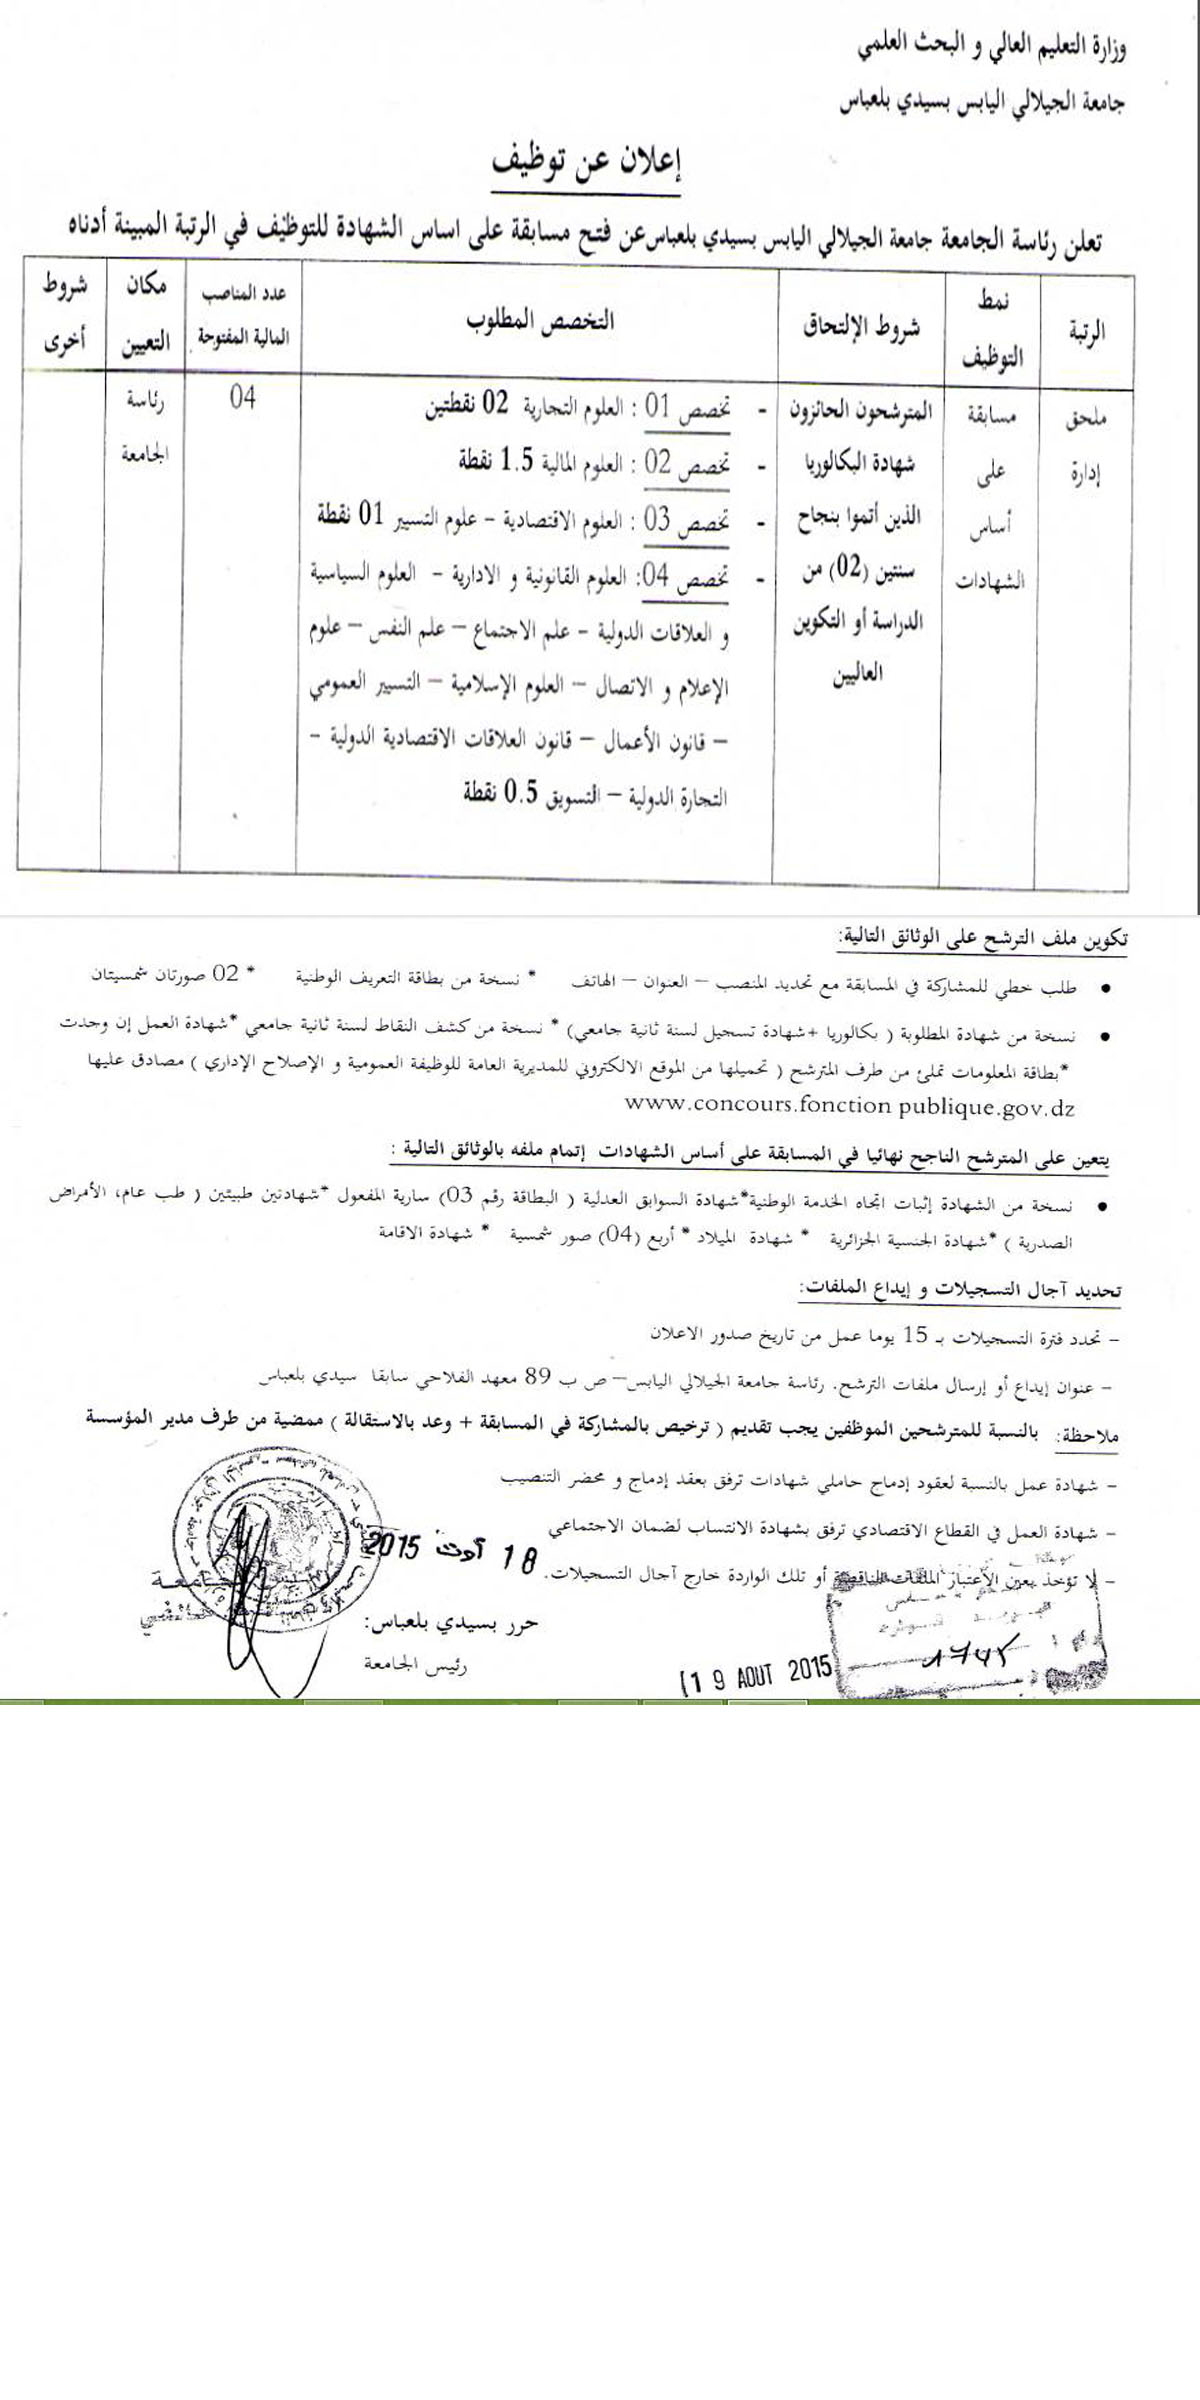 وزارة التعليم العالي و البحث العلمي
جامعة الجيلالي اليابس بسيدي بلعباس
إعلان عن توظيف
تعلن رئاسة الجامعة جامعة الجيلالي اليابس بسيدي بلعباس عن فتح مسابقة على اساس الشهادة للتوظيف في الرتبة المبينة أدناه
الرتبة
نمط
التوظيف
شروط الإلتحاق
التخصص المطلوب
عدد المناصب
المالية المفتوحة
مكان
التعيين
شروط
أخرى
ملحق
إدارة
مسابقة
على
أساس
الشهادات
المترشحون الحائزون
شهادة البكالوريا
الذين أتموا بنجاح
سنتين (02) من
الدراسة أو التكوين
العاليين
- تخصص 01 : العلوم التجارية 02 نقطتين
- تخصص 02 : العلوم المالية 1.5 نقطة
- تخصص 03 : العلوم الاقتصادية – علوم التسيير 01 نقطة
- تخصص 04: العلوم القانونية و الادارية – العلوم السياسية
و العلاقات الدولية – علم الاجتماع – علم النفس – علوم
الإعلام و الاتصال – العلوم الإسلامية – التسيير العمومي
– قانون الأعمال – قانون العلاقات الاقتصادية الدولية –
التجارة الدولية – التسويق 0.5 نقطة
04
رئاسة
الجامعة
تكوين ملف الترشح على الوثائق التالية:
• طلب خطي للمشاركة في المسابقة مع تحديد المنصب – العنوان – الهاتف * نسخة من بطاقة التعريف الوطنية * 02 صورتان شمسيتان
• نسخة من شهادة المطلوبة ( بكالوريا +شهادة تسجيل لسنة ثانية جامعي) * نسخة من كشف النقاط لسنة ثانية جامعي *شهادة العمل إن وجدت
*بطاقة المعلومات تملئ من طرف المترشح ( تحميلها من الموقع الالكتروني للمديرية العامة للوظيفة العمومية و الإصلاح الإداري ) مصادق عليها
www.concours.fonction publique.gov.dz
يتعين على المترشح الناجح نهائيا في المسابقة على أساس الشهادات إتمام ملفه بالوثائق التالية :
• نسخة من الشهادة إثبات اتجاه الخدمة الوطنية*شهادة السوابق العدلية ( البطاقة رقم 03) سارية المفعول *شهادتين طبيتين ( طب عام، الأمراض
الصدرية ) *شهادة الجنسية الجزائرية * شهادة الميلاد * أربع (04) صور شمسية * شهادة الاقامة
تحديد آجال التسجيلات و إيداع الملفات:
– تحدد فترة التسجيلات بـ 15 يوما عمل من تاريخ صدور الاعلان
– عنوان إيداع أو إرسال ملفات الترشح. رئاسة جامعة الجيلالي اليابس– ص ب 89 معهد الفلاحي سابقا سيدي بلعباس
ملاحظة: بالنسبة للمترشحين الموظفين يجب تقديم ( ترخيص بالمشاركة في المسابقة + وعد بالاستقالة ) ممضية من طرف مدير المؤسسة
– شهادة عمل بالنسبة لعقود إدماج حاملي شهادات ترفق بعقد إدماج و محضر التنصيب
– شهادة العمل في القطاع الاقتصادي ترفق بشهادة الانتساب لضمان الاجتماعي
– لا تؤخذ بعين الأعتبار الملفات الناقصة أو تلك الواردة خارج آجال التسجيلات.
18 أوت 2015
حرر بسيدي بلعباس:
رئيس الجامعة
19 AOUT 2015
1745